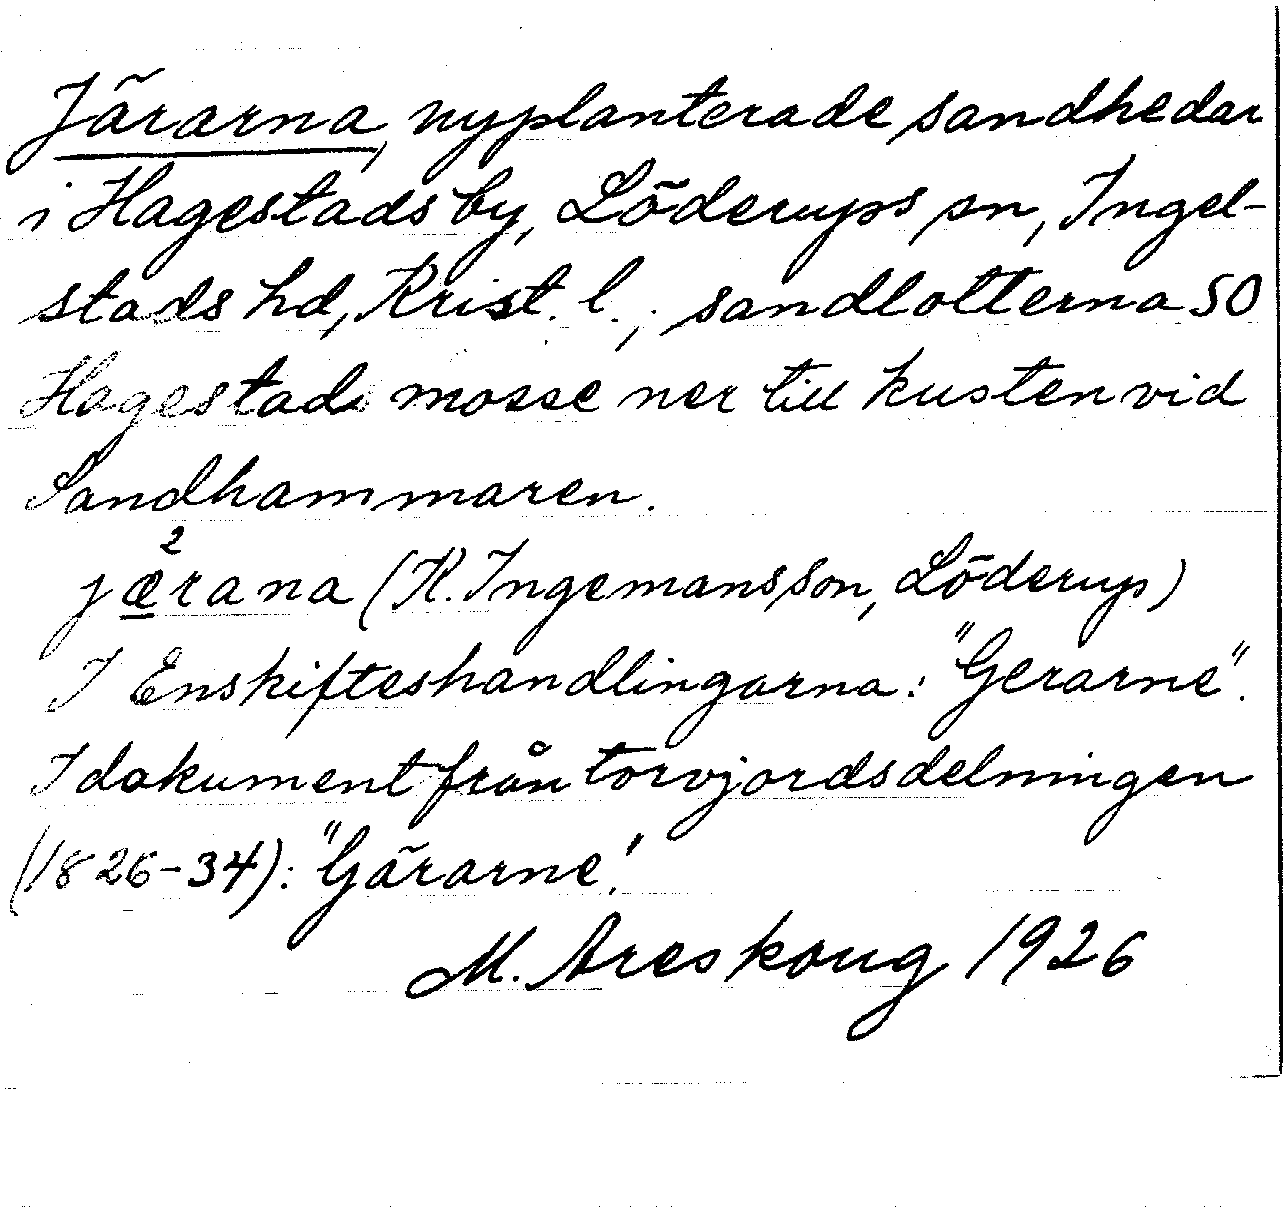 Järarna, nyplanterade sandhedar
i Hagestads by, Löderups sn, Ingel-
stads hd, Krist. l.; sandlotterna SO
Hagestads mosse ner till kusten vid
Sandhammaren.
jæ²rana (K. Ingemansson, Löderup)
I Enskifteshandlingarna: "Gerarne".
I dokument från torvjordsdelningen
(1826-34): "Gärarne".
M. Areskoug 1926